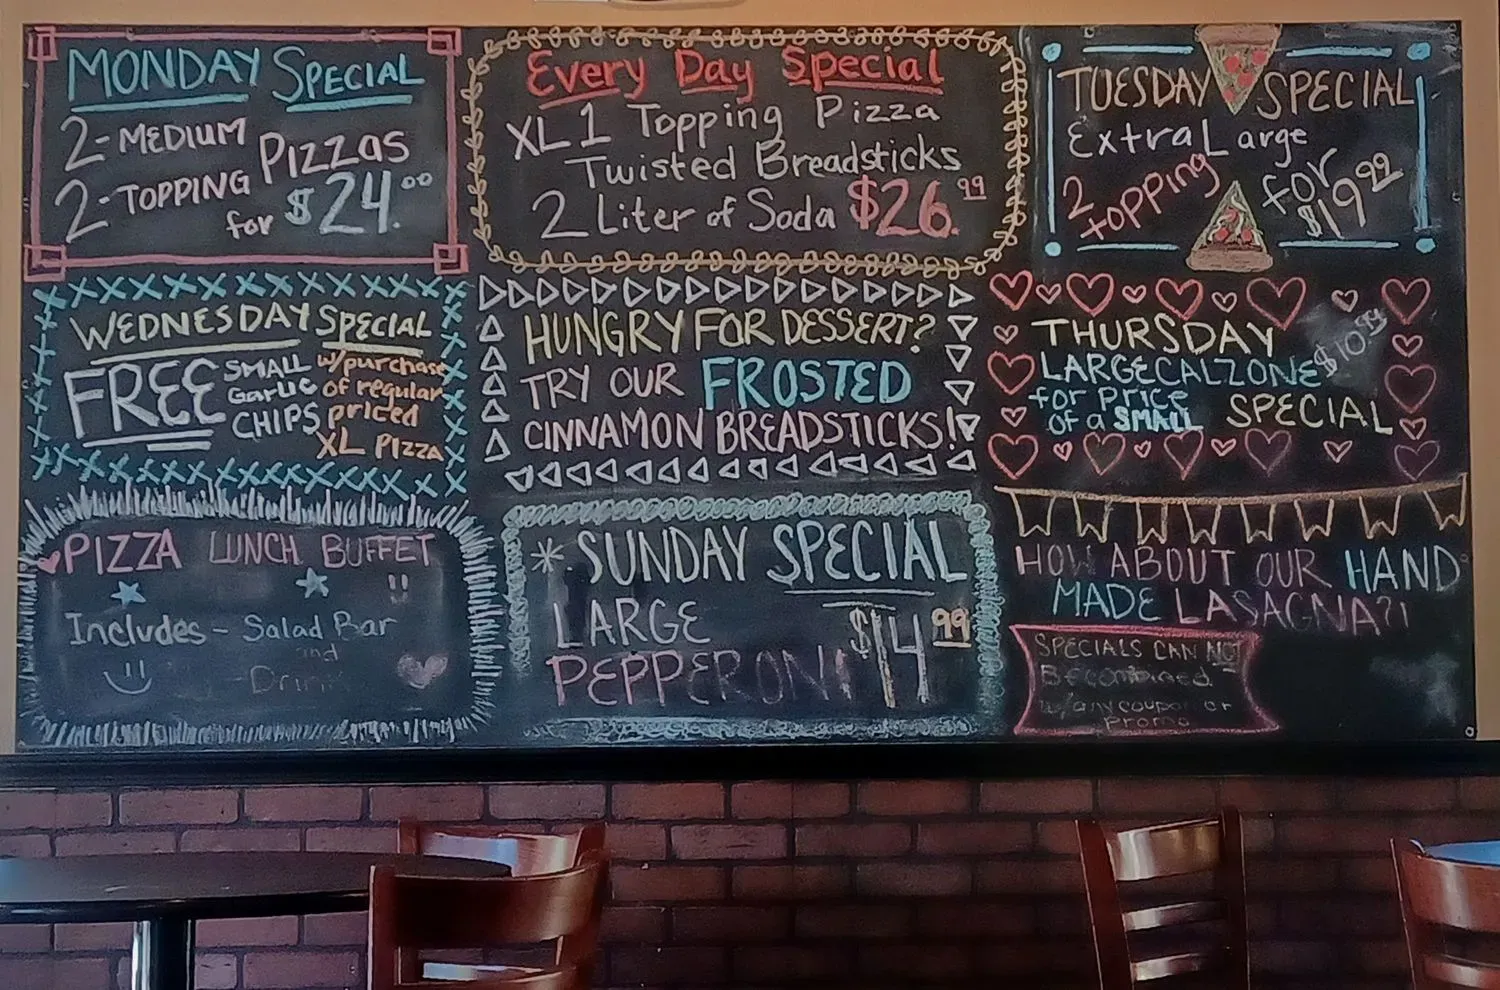 MONDAY SPECIAL
2-MEDIUM
2-TOPPING PIZZAS
for $24.00
Every Day Special
XL 1 Topping Pizza
Twisted Breadsticks
2 Liter of Soda $26.99
TUESDAY SPECIAL
Extra Large
2 topping for
$19.99
WEDNESDAY SPECIAL
FREE SMALL GARLIC CHIPS
w/purchase
of regular
priced
XL PIZZA
HUNGRY FOR DESSERT?
TRY OUR FROSTED
CINNAMON BREADSTICKS!
THURSDAY
LARGE CALZONE $10.99
for price
of a SMALL SPECIAL
PIZZA LUNCH BUFFET
Includes - Salad Bar
and
- Drink
* SUNDAY SPECIAL
LARGE
PEPPERONI $14.99
HOW ABOUT OUR HAND
MADE LASAGNA?!
SPECIALS CAN NOT
Be combined
w/any coupon or
Promo